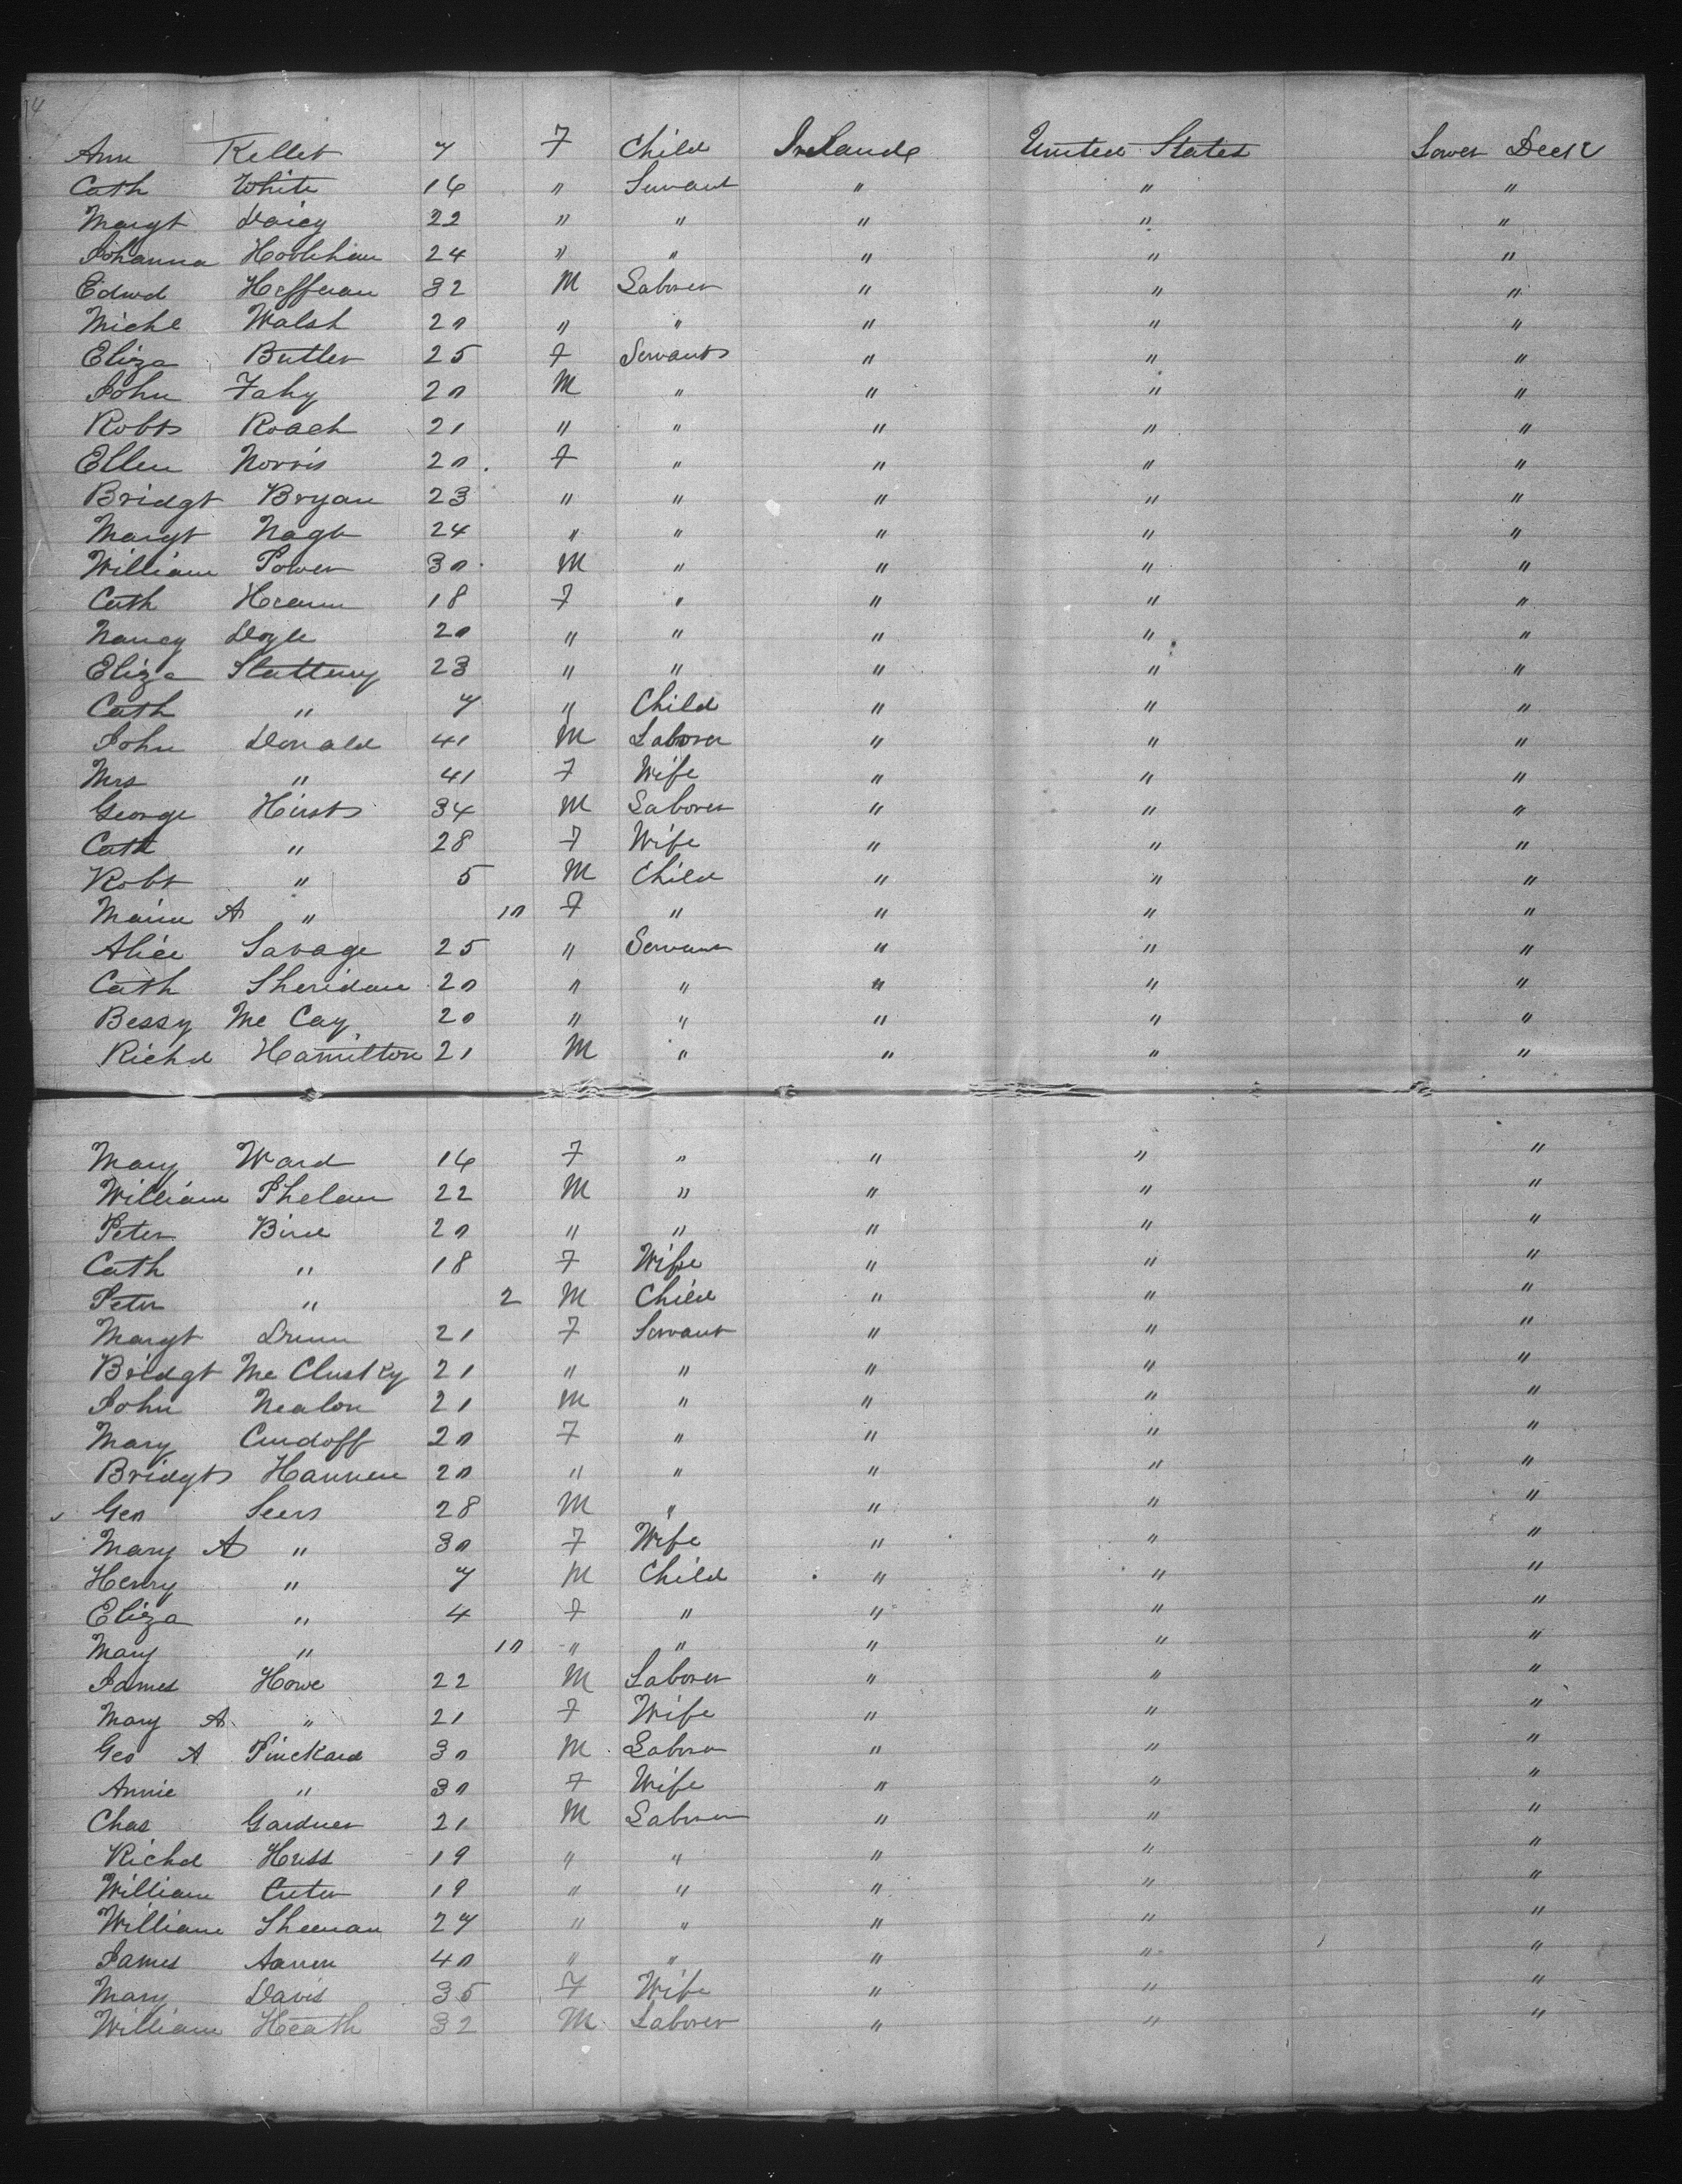 4
Ann Kellet 7 F Child Ireland United States Lower Deck
Cath White 16 " Servant " " "
Margt Daicy 22 " " " " "
Johanna Hoolihan 24 " " " " "
Edwd Heffernan 32 M Laborer " " "
Michl Walsh 20 " " " " "
Eliza Butler 25 F Servant " " "
John Fahy 20 M " " " "
Robt Roach 21 " " " " "
Ellen Norris 20 F " " " "
Bridgt Bryan 23 " " " " "
Margt Nagle 24 " " " " "
William Power 30 M " " " "
Cath 18 F " " " "
Nancy Doyle 20 " " " " "
Eliza Slattery 23 " " " " "
Cath " 7 " Child " " "
John Donald 41 M Laborer " " "
Mrs " 41 F Wife " " "
George Hirst 34 M Laborer " " "
Cath " 28 F Wife " " "
Robt " 5 M Child " " "
A " 10 F " " " "
Alice Savage 25 " Servant " " "
Cath Sheridan 20 " " " " "
Bessy Mc Cay 20 " " " " "
Richd Hamilton 21 M " " " "
Mary Ward 16 F " " " "
William Phelan 22 M " " " "
Peter Bird 20 " " " " "
Cath " 18 F Wife " " "
Peter " 2 M Child " " "
Margt 21 F Servant " " "
Bridgt Mc Clusky 21 " " " " "
John Nealon 21 M " " " "
Mary 20 F " " " "
Bridgt Hannen 20 " " " " "
Geo Seers 28 M " " " "
Mary A " 30 F Wife " " "
Henry " 7 M Child " " "
Eliza " 4 F " " " "
Mary " 10 " " " " "
James Howe 22 M Laborer " " "
Mary A " 21 F Wife " " "
Geo A Pinckard 30 M Laborer " " "
Annie " 30 F Wife " " "
Chas Gardner 21 M Laborer " " "
Richd 19 " " " " "
William 19 " " " " "
William Sheenan 27 " " " " "
James 40 " " " " "
Mary Davis 35 F Wife " " "
William Heath 32 M Laborer " " "